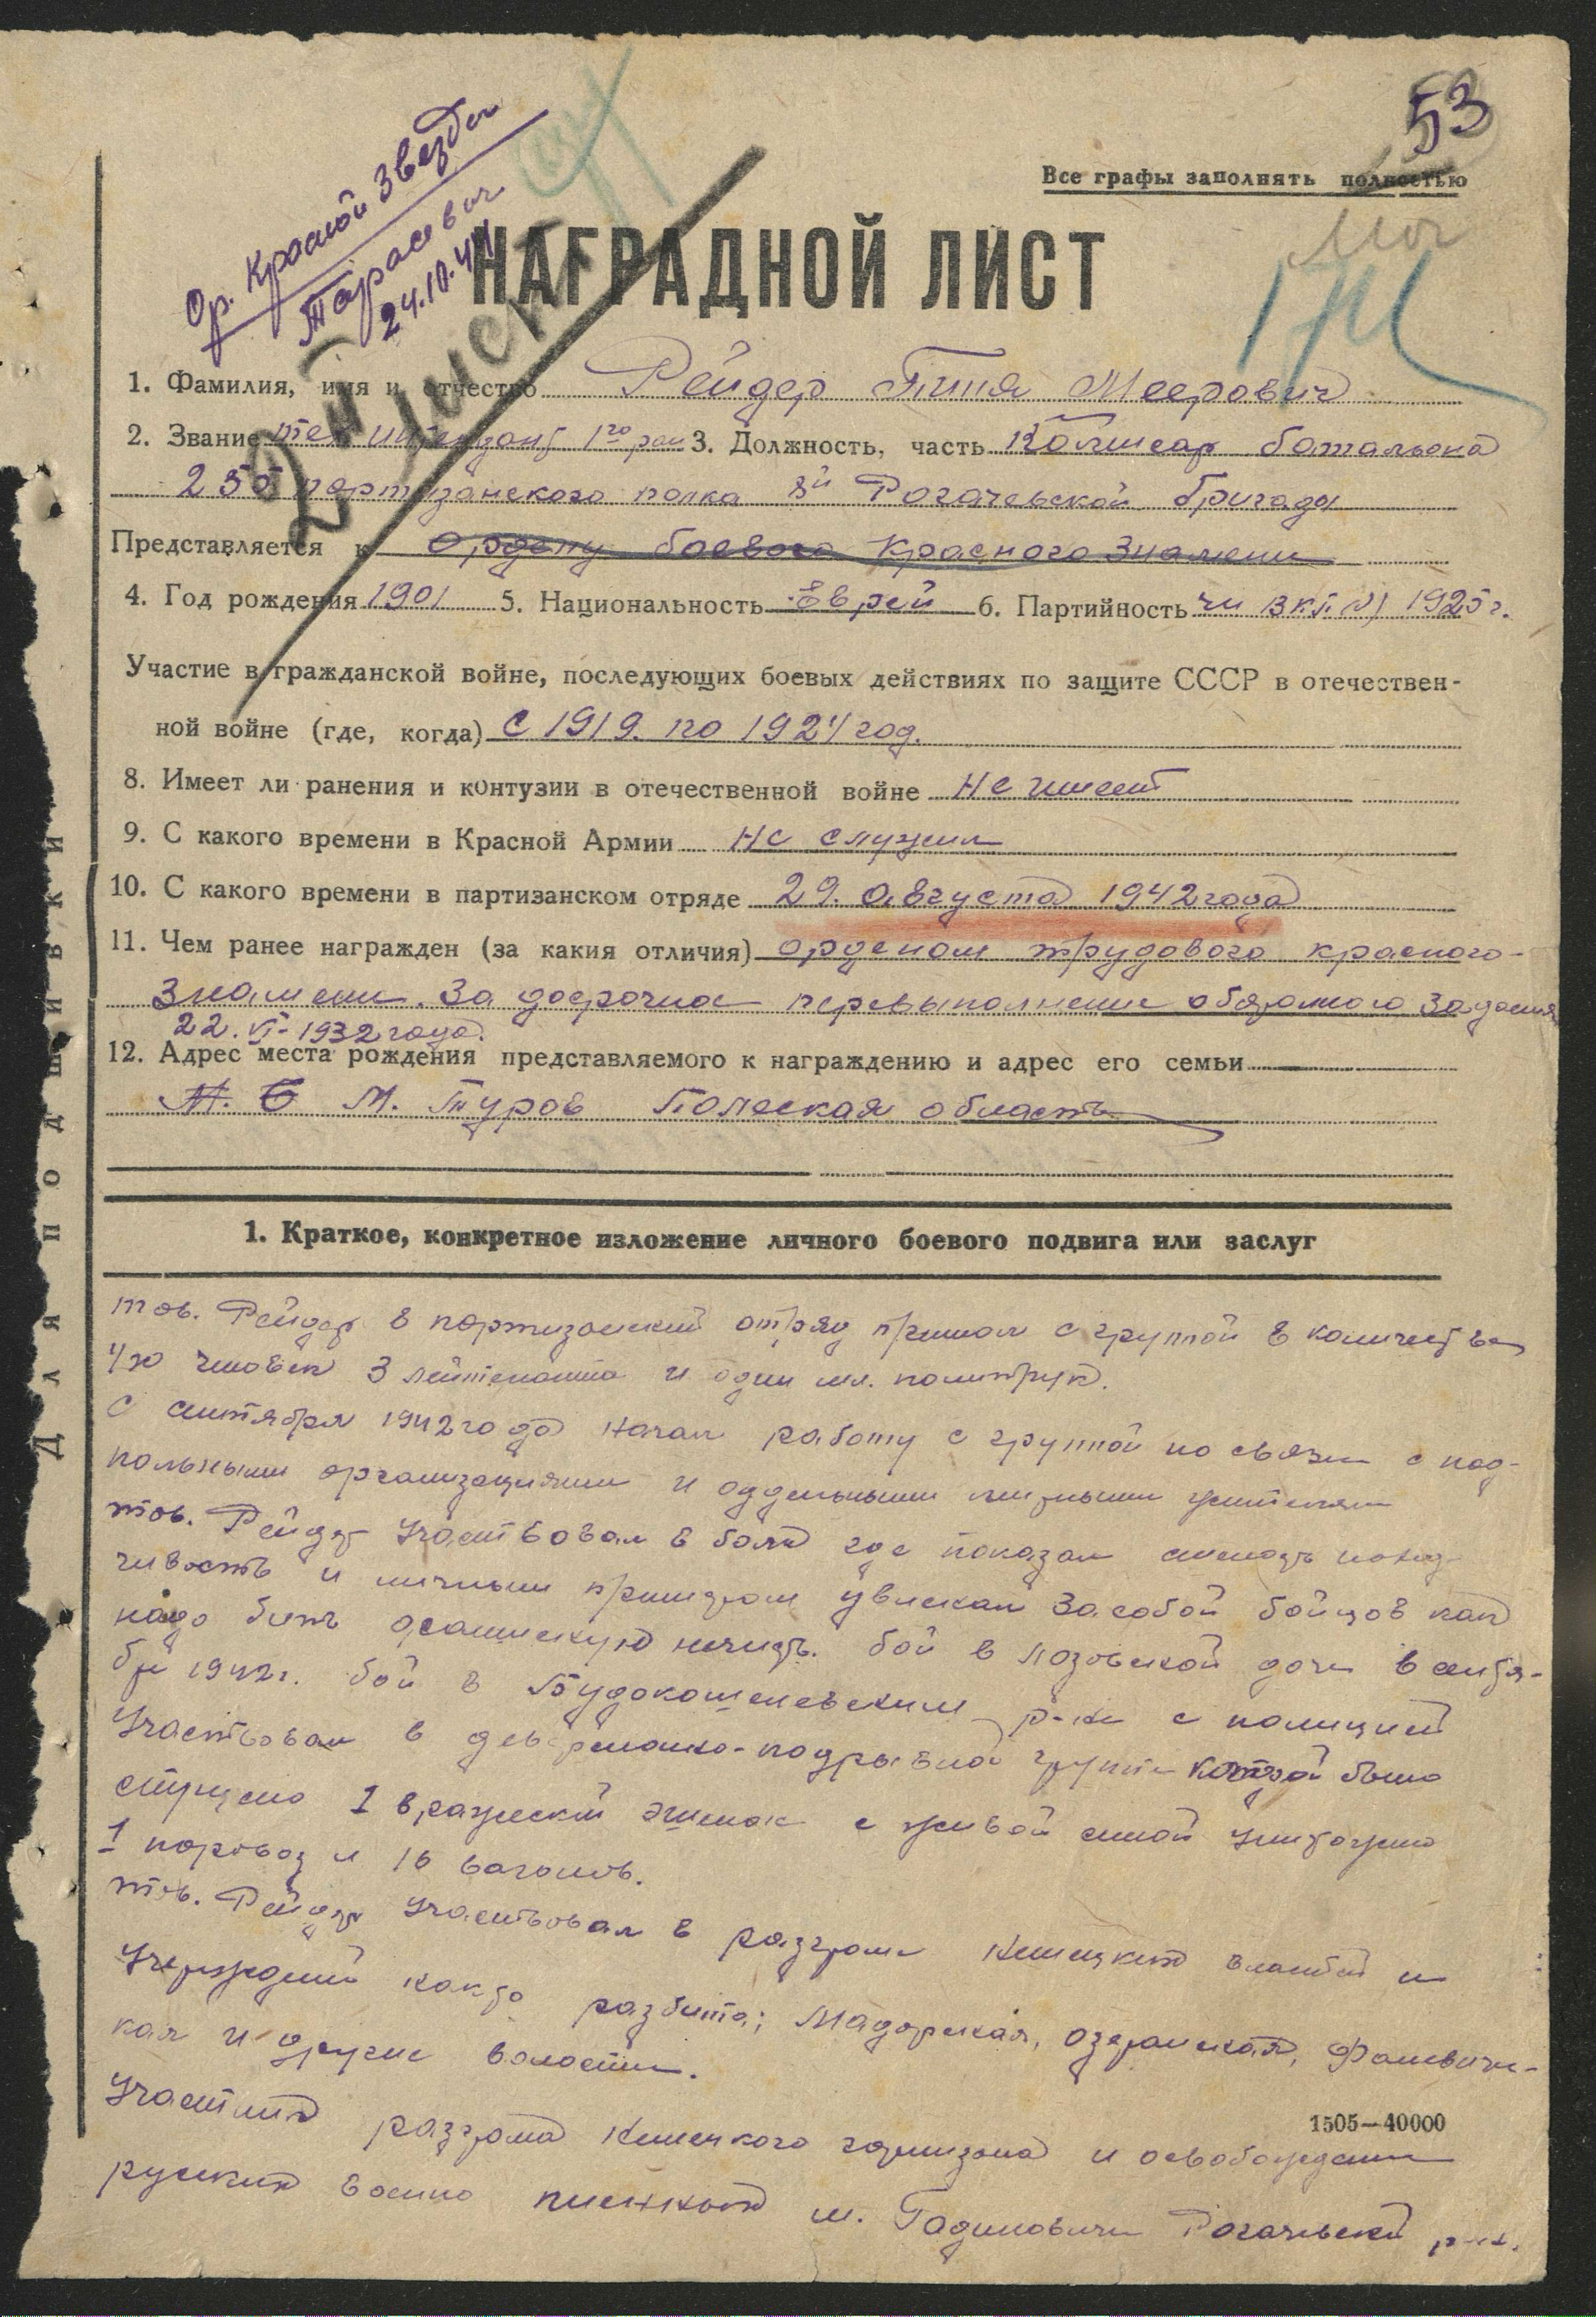 53
Все графы заполнять полностью
Ор. Красной Звезды
Тарасевич
24.10.44
НАГРАДНОЙ ЛИСТ
1. Фамилия, имя и отчество Рейдер Пиня Меерович
2. Звание тех интендант 1го ран 3. Должность, часть Комисар батальона
255 партизанского полка 8й Рогачевской бригады
Представляется к ордену боевого Красного Знамени
4. Год рождения 1901 5. Национальность Еврей 6. Партийность чл ВКП(б) 1925 г.
Участие в гражданской войне, последующих боевых действиях по защите СССР в отечествен-
ной войне (где, когда) с 1919. по 1924 год.
8. Имеет ли ранения и контузии в отечественной войне Не имеет
9. С какого времени в Красной Армии Не служил
10. С какого времени в партизанском отряде 29. августа 1942 года
11. Чем ранее награжден (за какия отличия) орденом трудового красного-
Знамени. За досрочное перевыполнение задания
22. VI-1932 года.
12. Адрес места рождения представляемого к награждению и адрес его семьи
М. Туров Полеская область
Для подшивки
1. Краткое, конкретное изложение личного боевого подвига или заслуг
тов. Рейдер в партизанский отряд пришол с группой в количестве
человек 3 лейтенанта и один мл. политрук.
С сентября 1942 года начал работу с группой по связи с под-
польными организациями и
тов. Рейдер участвовал в боях где показал
чивость и личным примером увлекал за собой бойцов как
надо бить нечисть. бой в Лозовской даче в сентя-
бре 1942 г. бой в Будокошелевском р-не с полицией
Участвовал в подрывной группе которой было
спущено 1 вражеский эшелон с живой силой уничтожено
1 паровоз и 16 вагонов.
тов. Рейдер участвовал в разгроме немецких властей и
учреждений как-то разбита; Мадорская, Озеранская, Фалевич-
кая и другие волости.
Участник разгрома немецкого гарнизона и освобождении
русских военно пленных м. Гадиловичи Рогачевский р-н.
1505—40000